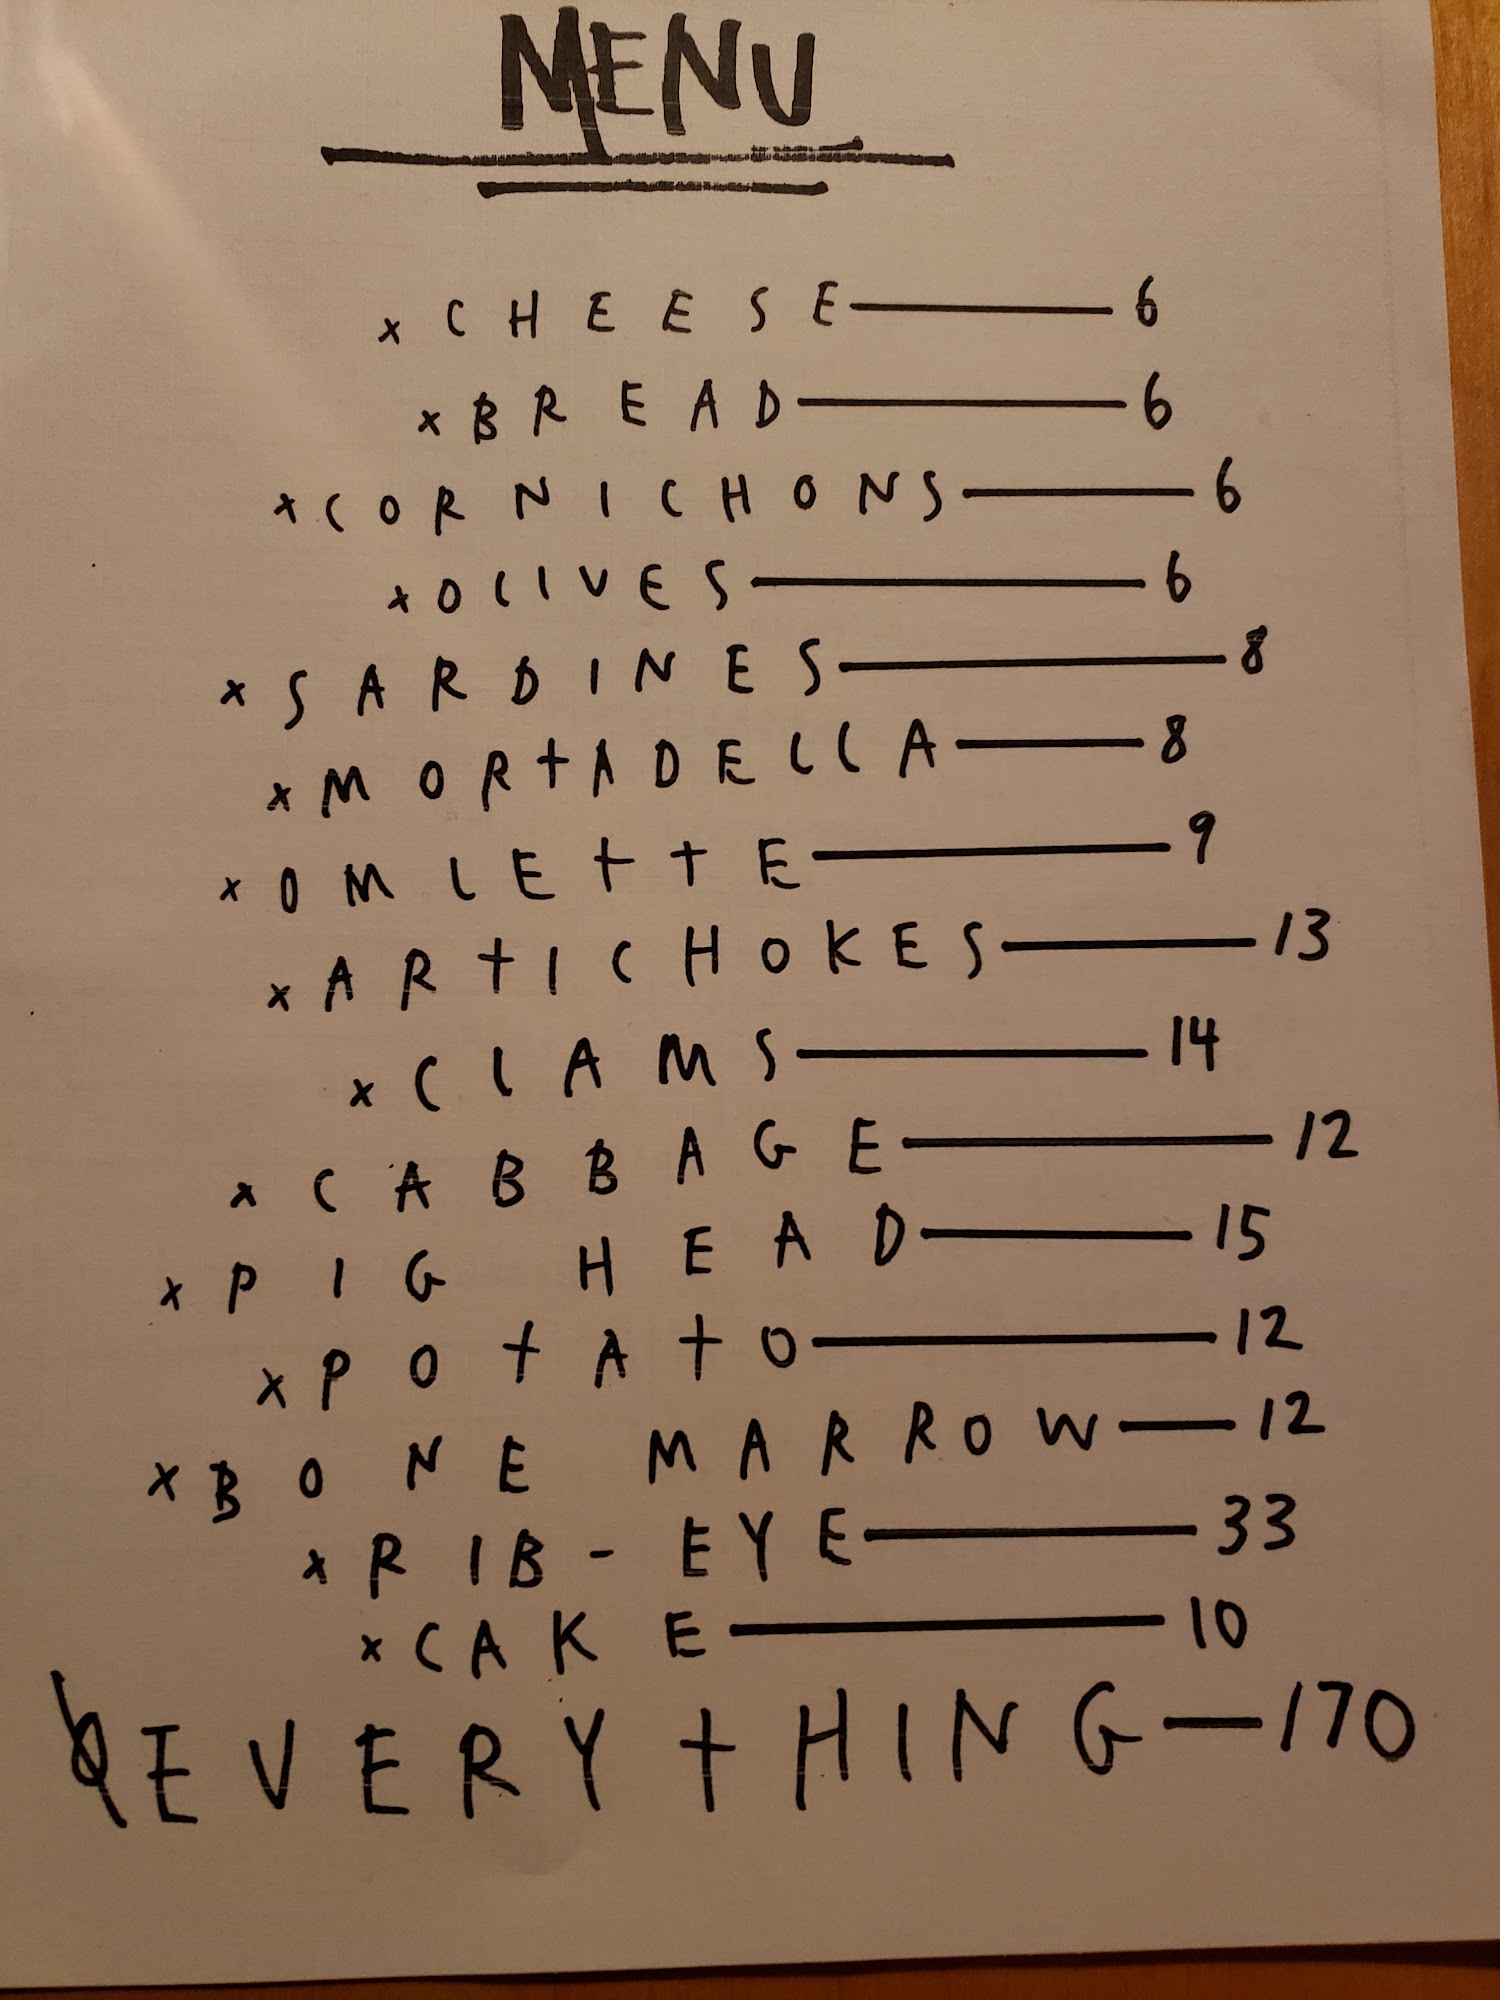 MENU
x CHEESE — 6
x BREAD — 6
x CORNICHONS — 6
x OLIVES — 6
x SARDINES — 8
x MORTADELLA — 8
x OMLETTE — 9
x ARTICHOKES — 13
x CLAMS — 14
x CABBAGE — 12
x PIG HEAD — 15
x POTATO — 12
x BONE MARROW — 12
x RIB-EYE — 33
x CAKE — 10
EVERYTHING — 170